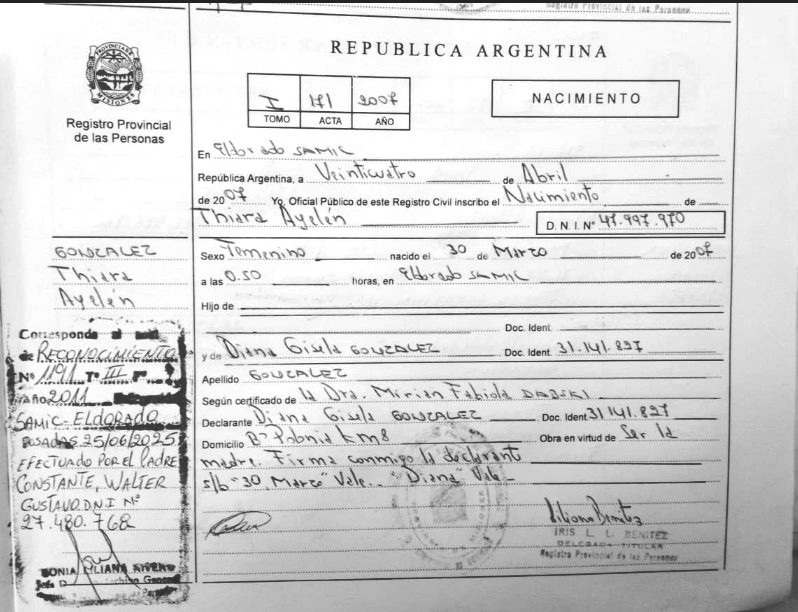 Registro Provincial de las Personas
REPUBLICA ARGENTINA
PROVINCIA DE
MISIONES
Registro Provincial
de las Personas
I 171 2007
TOMO ACTA AÑO
NACIMIENTO
En Eldorado SAMIC
República Argentina, a Veinticuatro de Abril
de 2007 Yo, Oficial Público de este Registro Civil inscribo el Nacimiento de
Thiara Ayelén D.N.I.Nº 47.997.970
Sexo Femenino nacido el 30 de Marzo de 2007
a las 0.50 horas, en Eldorado SAMIC
Hijo de
Doc. Ident.
y de Diana Gisela GONZALEZ Doc. Ident. 31.141.897
Apellido GONZALEZ
Según certificado de la Dra. Mirian Fabiola
Declarante Diana Gisela GONZALEZ Doc. Ident. 31141.897
Domicilio Bº Polonia Km8 Obra en virtud de Ser la
madre. Firma conmigo la declarant
s/b "30 Marzo" Vale.. Diana" Vale-
Liliana Benitez
IRIS L. L. BENITEZ
DELEGADA TITULAR
Registro Provincial de las Personas
GONZALEZ
Thiara
Ayelén
Corresponde al
de RECONOCIMIENTO
Nº 1191 Tº III Fº
año 2011
SAMIC-ELDORADO
POSADAS 25/06/2025
EFECTUADO POR EL PADRE
CONSTANTE, WALTER
GUSTAVO D.N.I Nº
27.480.768
SONIA LILIANA RIVERO